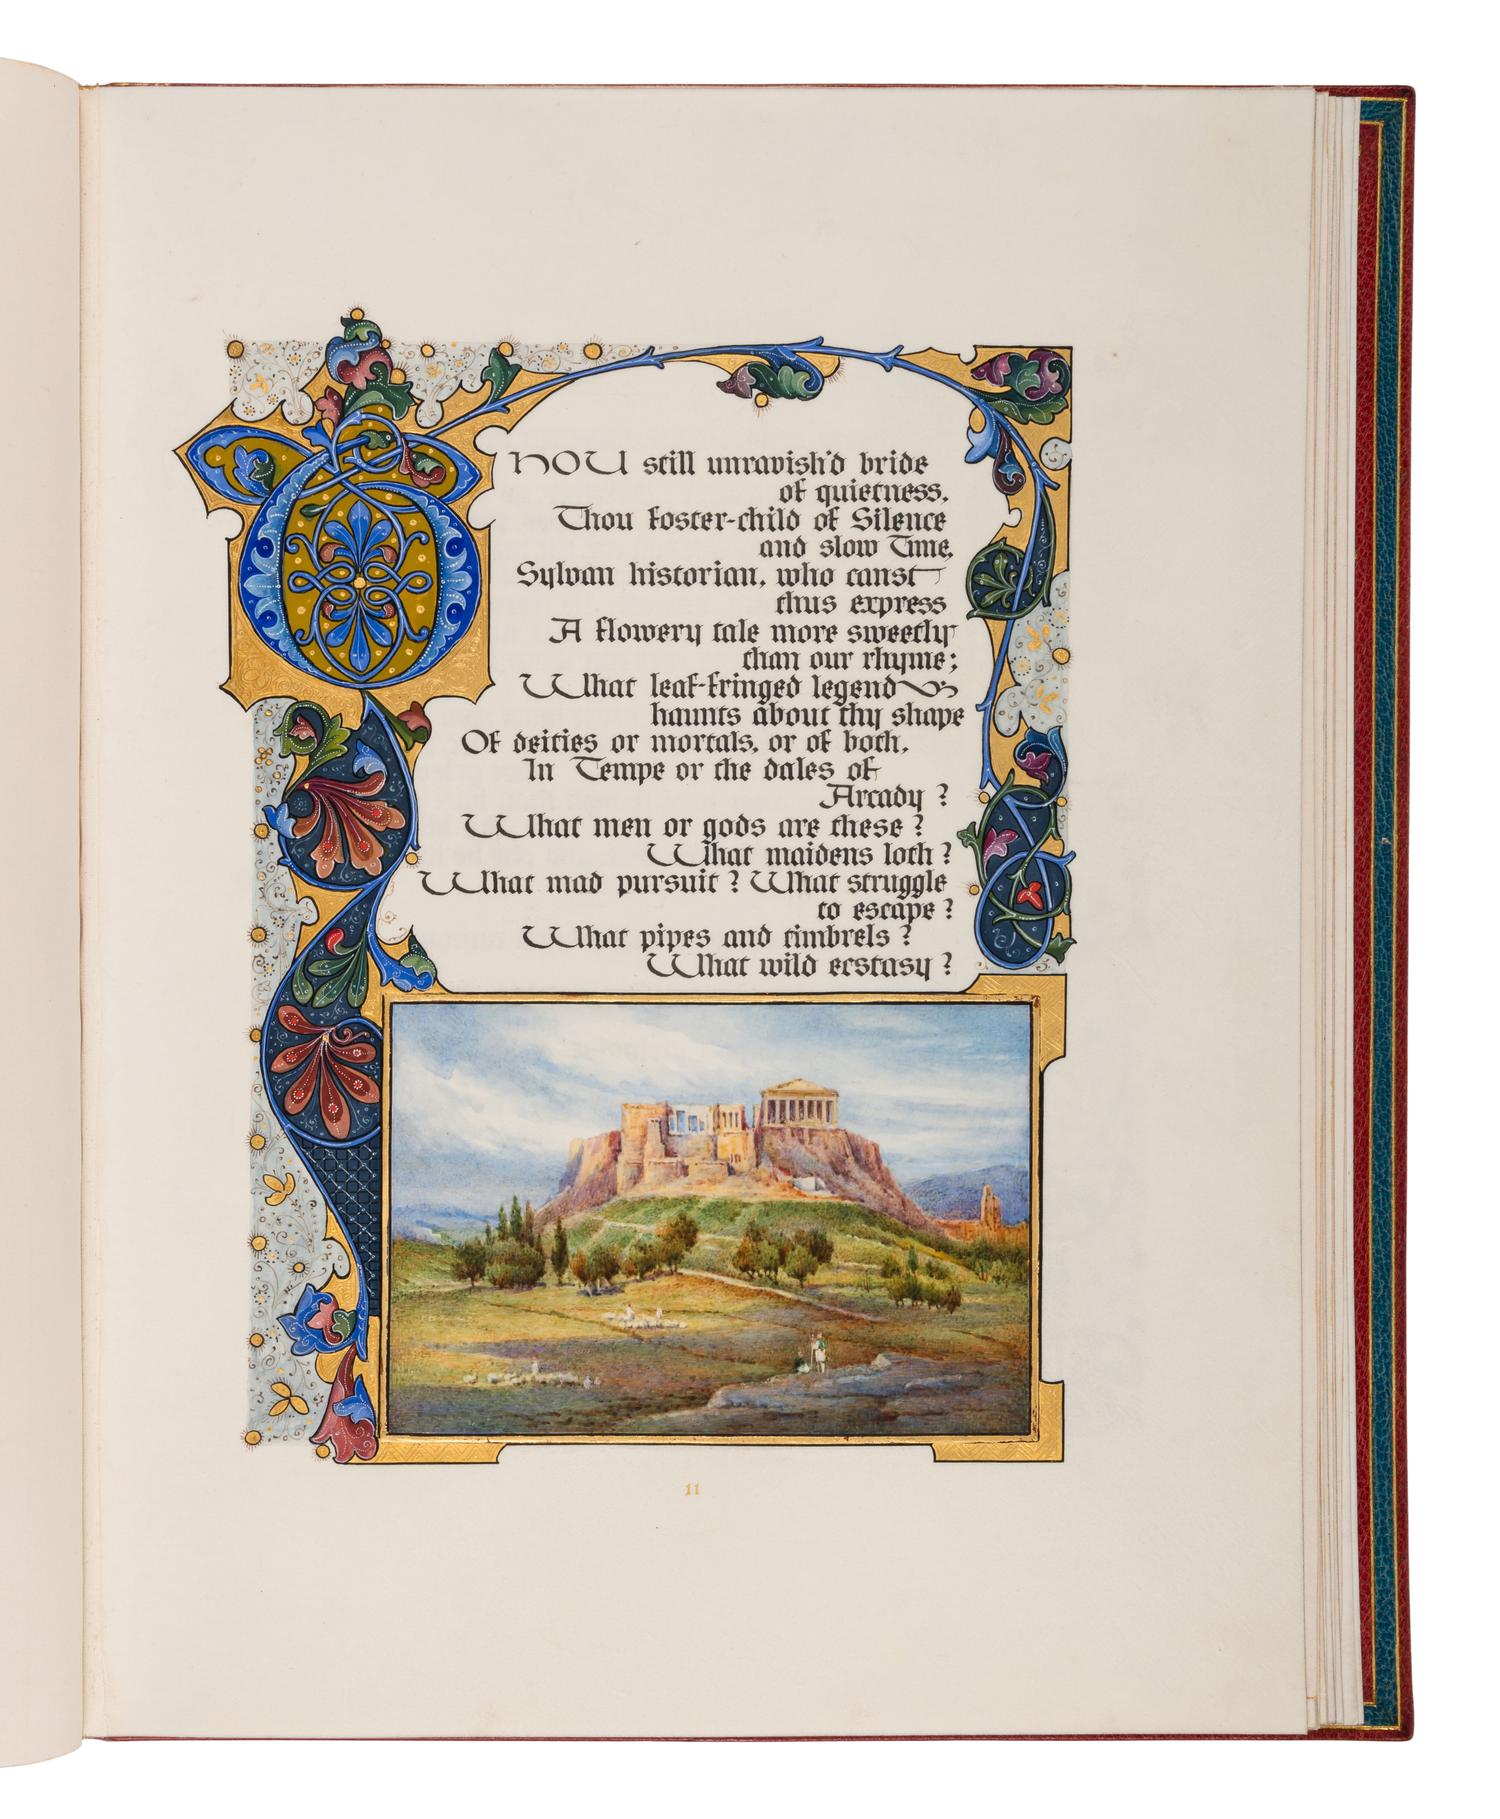 THOU still unravish'd bride
of quietness,
Thou foster-child of Silence
and slow Time,
Sylvan historian, who canst
thus express
A flowery tale more sweetly
than our rhyme;
What leaf-fringed legend
haunts about thy shape
Of deities or mortals, or of both,
In Tempe or the dales of
Arcady?
What men or gods are these?
What maidens loth?
What mad pursuit? What struggle
to escape?
What pipes and timbrels?
What wild ecstasy?
11